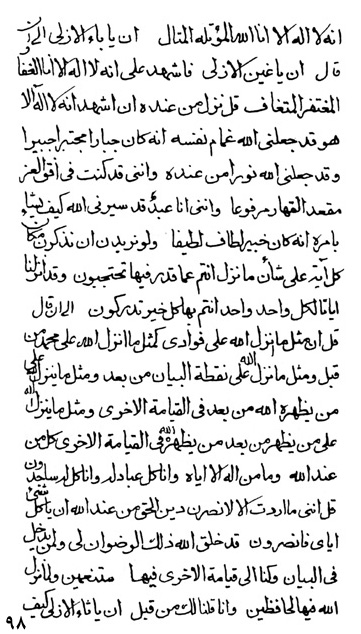 انه لا اله الا انا الله المؤتله المتال ان یا باء الازلی الی ان
قال ان یا غین الازلی فاشهد علی انه لا اله الا انا الغفار
المغتفر المتغاف قل نزل من عنده ان اشهد انه لا اله الا
هو قد جعلنی الله غمام نفسه انه کان جبارا مجتبرا جبیرا
و قد جعلنی الله نویرا من عنده وانی قد کنت فی افق العز
مقعد القهار مرفوعا وانی انا عبد قد سیرنی الله کیف یشاء
بامره انه کان خبیر لطاف لطیفا ولو نریدن ان نذکرن مکان
کل آیة علی شأن ما نزل انتم عما قدر فیها تحتجبون و قد انزلنا
ایاتا لکل واحد واحد انتم بها کل خیر تدرکون الی ان قال
قل ان مثل ما نزل الله علی فؤادی کمثل ما انزل الله علی محمد من
قبل ومثل ما نزل الله علی نقطة البیان من بعد ومثل ما ینزل الله علی
من یظهره الله من بعد فی القیامة الاخری ومثل ما ینزل الله
علی من یظهر من بعد من یظهره الله فی القیامة الاخری کل من
عند الله وما من اله الا ایاه وانا کل عباد له وانا کل له ساجدون
قل اننی ما اردت الا لانصرن دین الحق من عند الله ان یا کل شیئ
ایای فانصرون قد خلق الله ذلک الرضوان لی ولمن یدخل
فی البیان وکنا الی قیامة الاخری فیها متنعمین ولما نزل
الله فیها لحافظین وانا قلنا لک من قبل ان یا ثاء الازلی کیف
٩٨